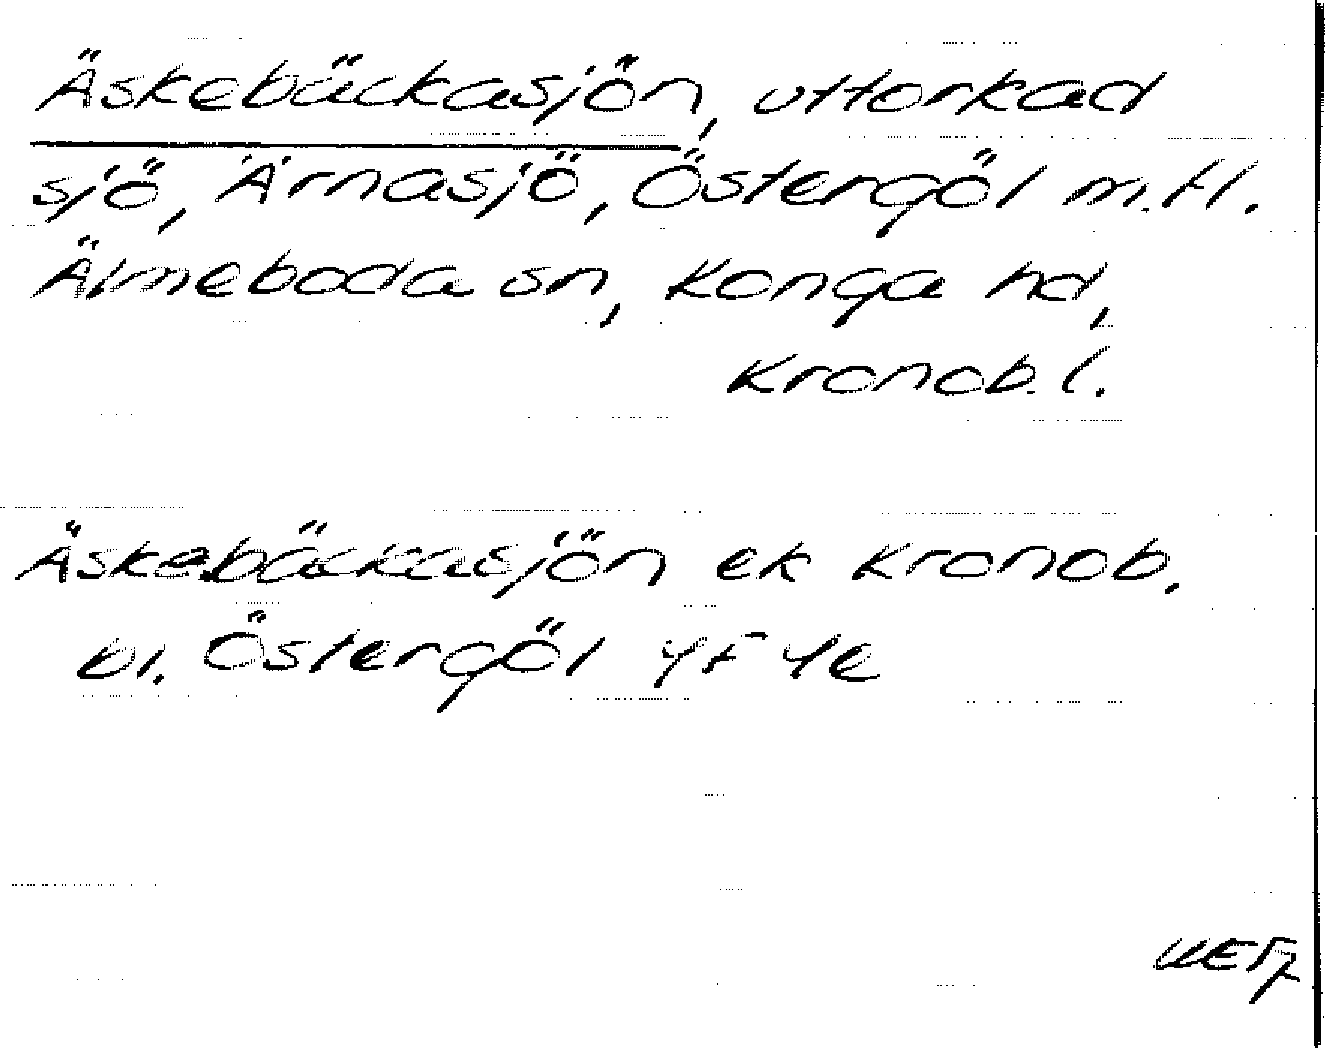 Äskebäckasjön, uttorkad
sjö, Ärnasjö, Östergöl m.fl.
Älmeboda sn, Konga hd,
Kronob. l.
Äskebäckasjön ek Kronob.
bl. Östergöl 4F 4e